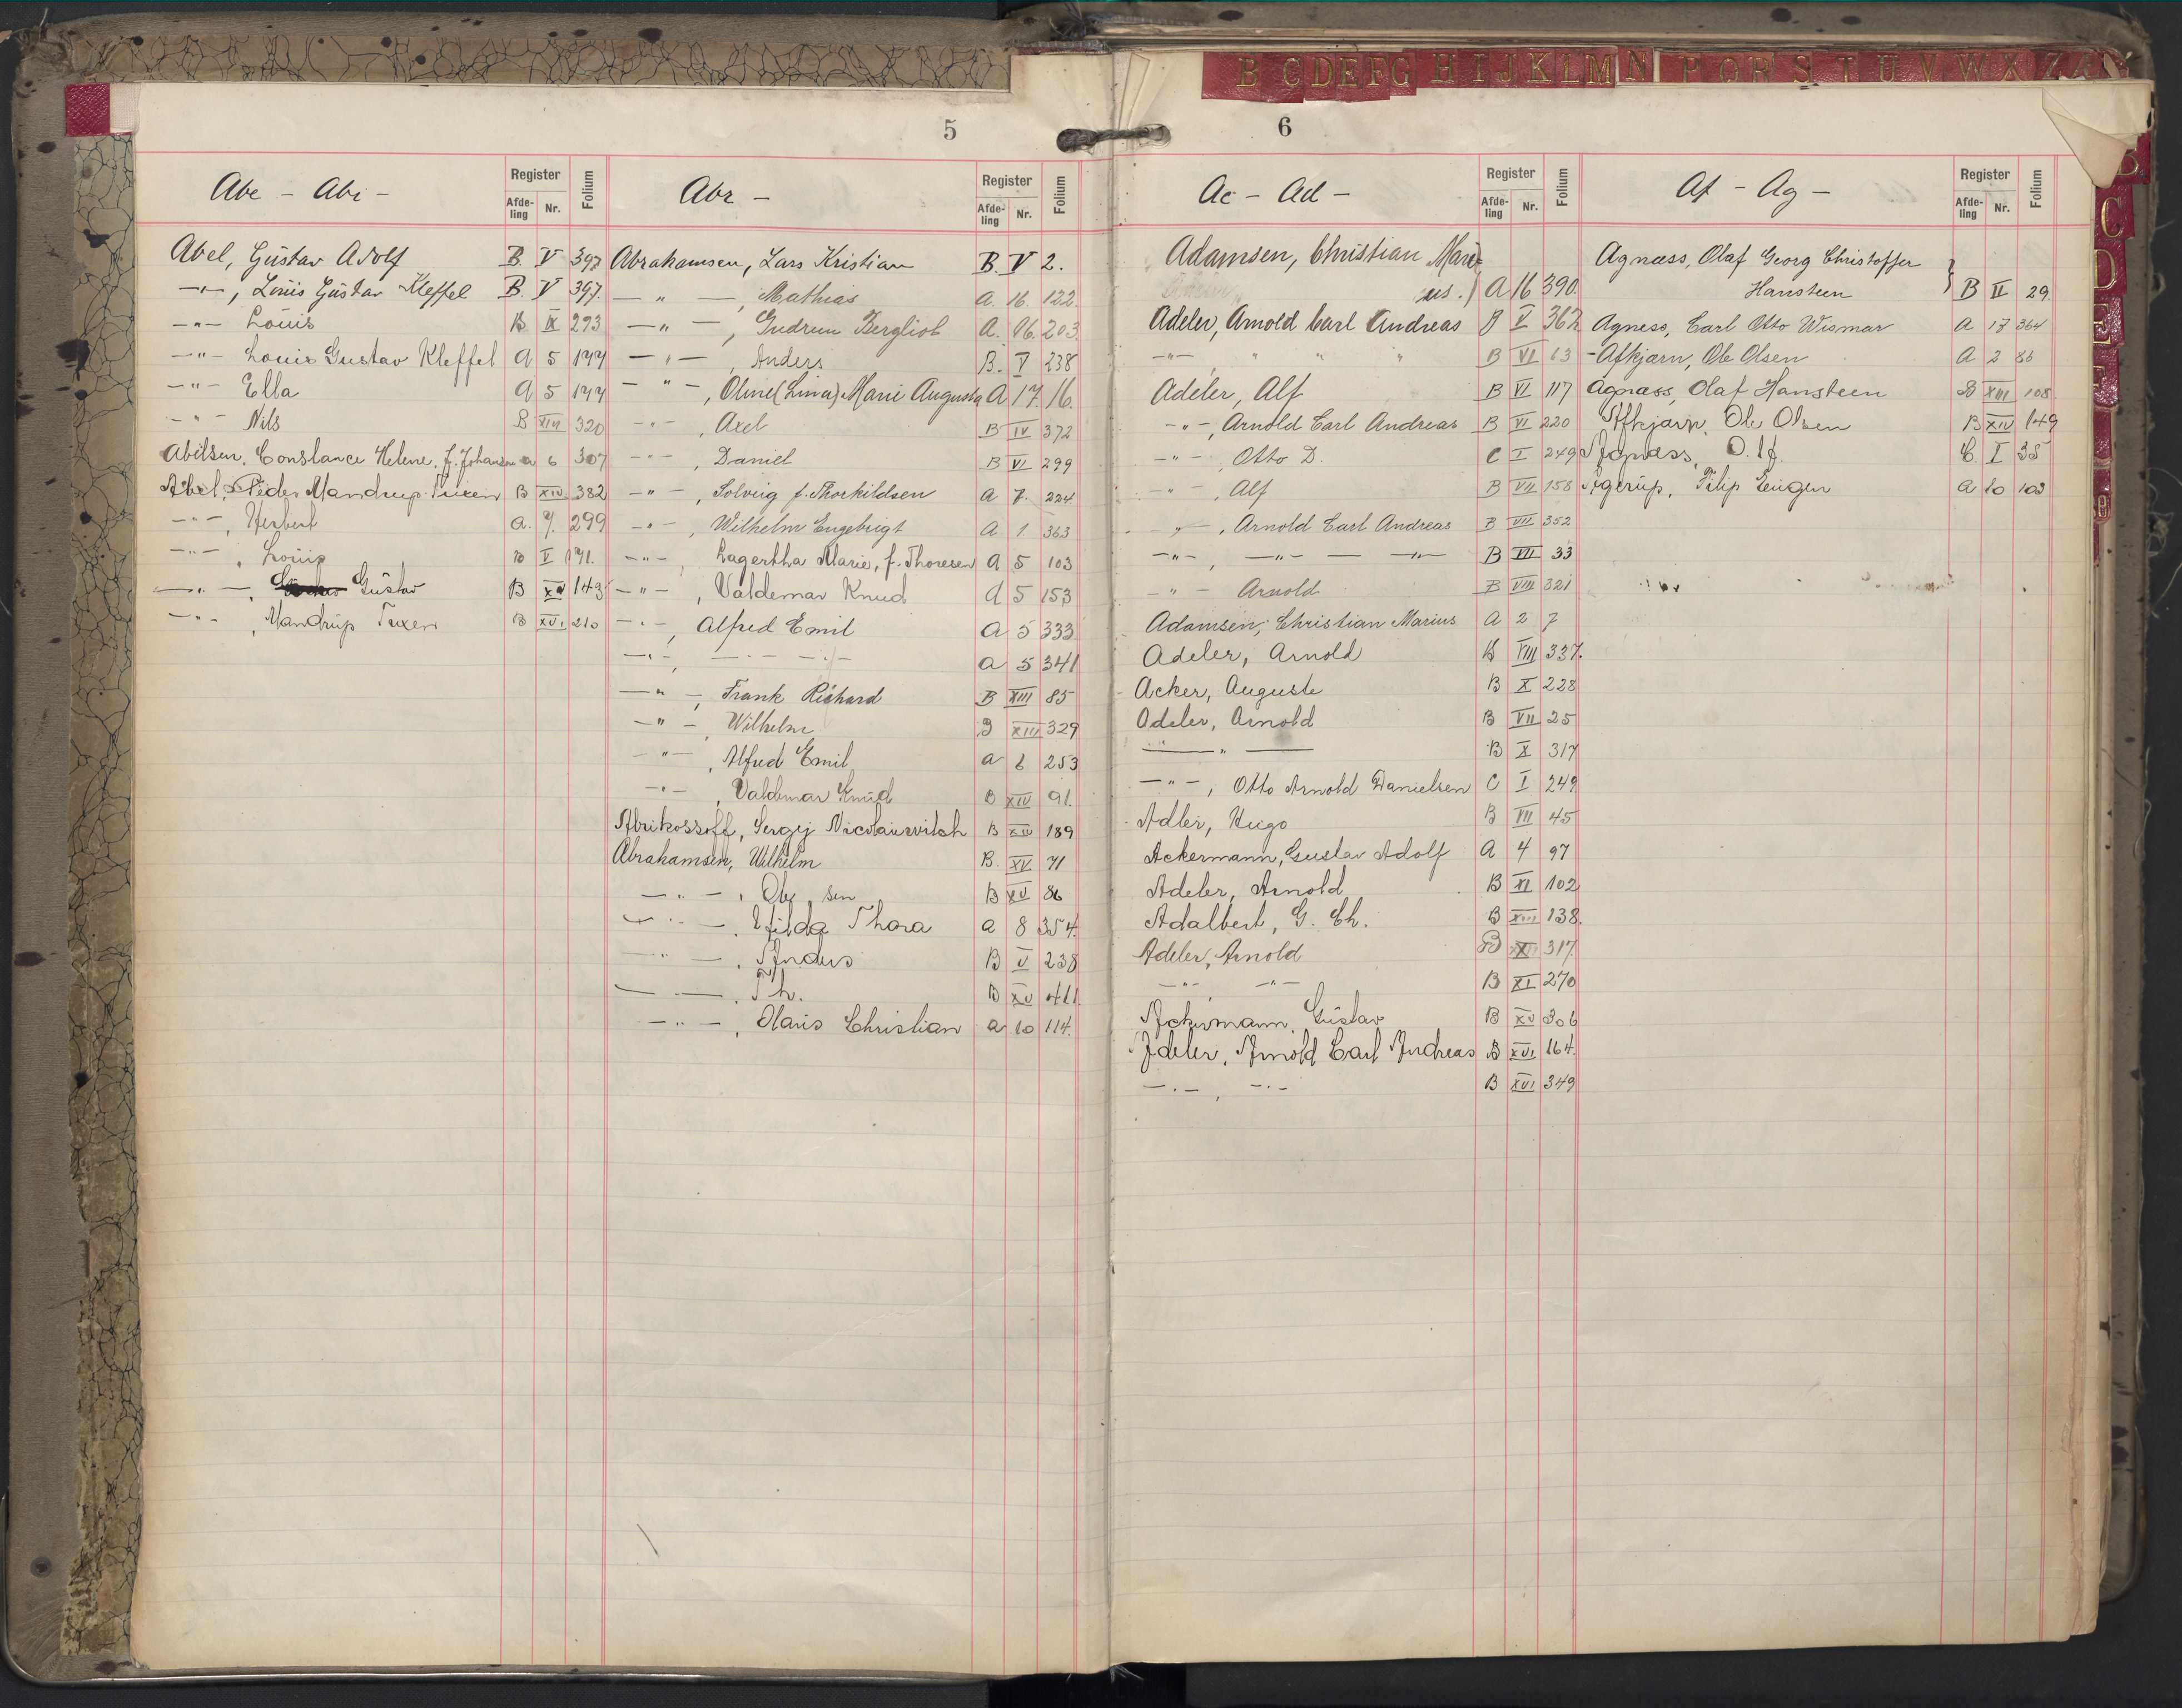 B C D E F G H I J K L M N P Q R S T U V W X Z Æ
5
Abe - Abi -
Register
Afde-
ling
Nr.
Folium
Abel, Gustav Adolf B. V 397
—"—, Louis Gustav Kleffel B. V 397.
—"— Louis B IX 293
—"— Louis Gustav Kleffel A 5 144
—"— Ella A 5 144
—"— Nils B XIII 320
Abelsen, Constance Helene, f. Johansen a 6 307
Abel, Peder Mandrup Tuxen B XIV 382
—"—, Herbert a. 7. 299
—"—, Louis B I 171.
—"—, Gustav B XV 143
—"—, Mandrup Tuxen B XVI 210
Abr -
Register
Afde-
ling
Nr.
Folium
Abrahamsen, Lars Kristian B. V 2.
—"—, Mathias A. 16. 122.
—"—, Gudrun Bergliot A. 16. 203
—"—, Anders B. V 238
—"—, Oline (Lina) Marie Augusta A 17. 16.
—"—, Axel B IV 372
—"—, Daniel B VI 299
—"—, Solveig f. Thorkildsen A 7. 224.
—"—, Wilhelm Engebrigt A 1. 363
—"—, Lagertha Marie, f. Thoresen A 5 103
—"—, Valdemar Knud A 5 153
—"—, Alfred Emil A 5 333
—"—, —"— —"— a 5 341
—"—, Frank Richard B XIII 85
—"—, Wilhelm B XIII 329
—"—, Alfred Emil a 6 253
—"—, Valdemar Knud B XIV 91.
Abrikossoff, Sergej Nicolaiewitch B XIV 189
Abrahamsen, Wilhelm B. XV 71
—"—, Ole, sen B XV 86
—"—, Hilda Thora a 8 354.
—"—, Anders B V 238
—"—, Th. B XV 411.
—"—, Hans Christian a 10 114.
6
Ac - Ad -
Register
Afde-
ling
Nr.
Folium
Adamsen, Christian Mari-
us. A 16 390.
Adeler, Arnold Carl Andreas B V 362
—"— " " " B VI 63
Adeler, Alf B VI 117
—"—, Arnold Carl Andreas B VI 220
—"—, Otto D. C I 249
—"—, Alf B VII 158
—"—, Arnold Carl Andreas B VII 352
—"—, —"— — —"— B VII 33
—"— Arnold B VIII 321
Adamsen, Christian Marius A 2 7
Adeler, Arnold B VIII 337.
Acker, Auguste B X 228
Adeler, Arnold B VII 25
—"— B X 317
—"—, Otto Arnold Danielsen C I 249
Adler, Hugo B VII 45
Ackermann, Gustav Adolf A 4 97
Adeler, Arnold B XI 102
Adalbert, G. Ch. B XIII 138.
Adeler, Arnold B X 317.
—"— —"— B XI 270
Ackermann, Gustav B XV 306
Adeler, Arnold Carl Andreas B XVI 164.
—"—, —"— B XVI 349
Af - Ag -
Register
Afde-
ling
Nr.
Folium
Agnæss, Olaf Georg Christoffer
Hansteen B II 29.
Agness, Carl Otto Wismar A 17 364
- Afkjærn, Ole Olsen A 2 86
Agnæss, Olaf Hansteen B XIII 108
Afkjærn, Ole Olsen B XIV 149
Agnæss, O. H. C. I 35
Agerup, Filip Eugen a 10 103
B
C
D
E
F